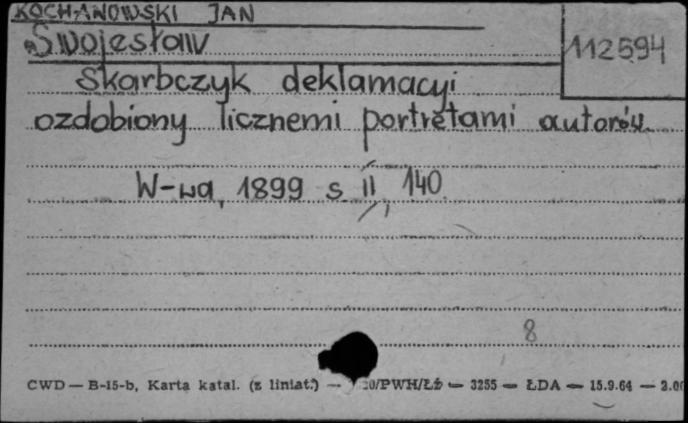 KOCHANOWSKI JAN
Swojesław
112594
Skarbczyk deklamacyi
ozdobiony licznemi portretami autorów
W-wa, 1899 s. II, 140
8
CWD — B-15-b, Karta katal. (z liniat.) — 20/PWH/Łż — 3255 — ŁDA — 15.9.64 — 2.00